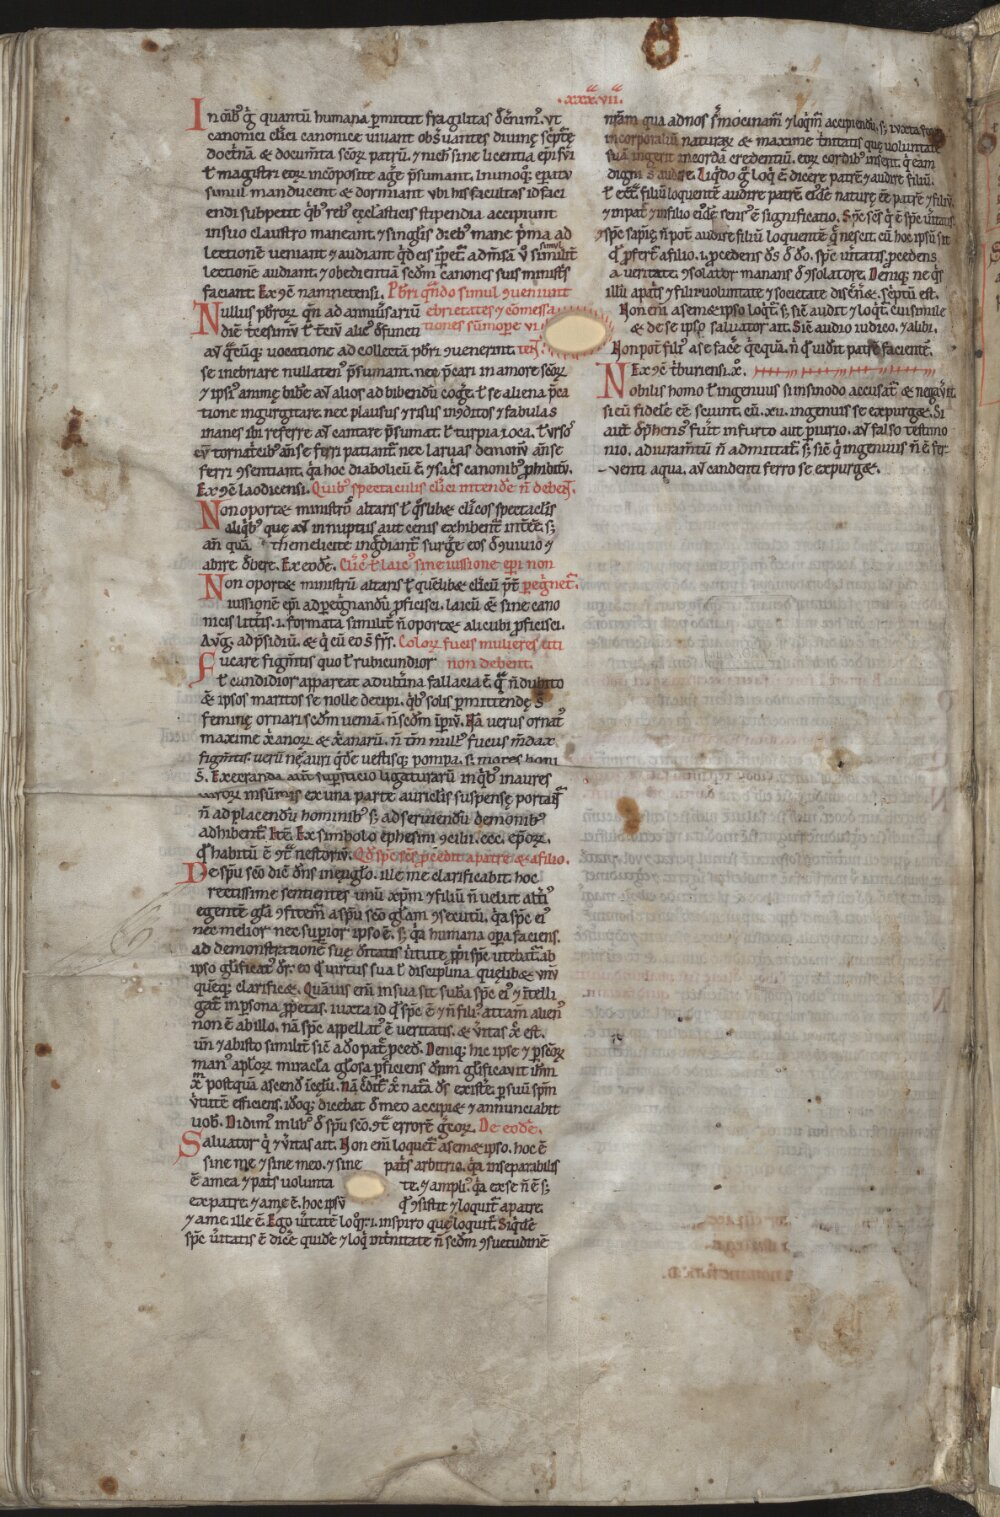 xxx.vii.
In oib; gͥ quantũ humana pmittit fragilitas dc̃nim᷒. ut
canonici cl̃ici canonice uiuant obs̃uantes diuinę sc̃ptę
doct̃nã & docum̃ta sc̃oꝝ patrũ. ⁊ nich̃ sine licentia ep̃i sui
ł magistri eoꝝ incõposite aḡe p̃sumant.
simul manducent & dormiant ubi his facultas id faci
endi subpetit q̃b᷒ reb᷒ ęcclesticis stipendia accipiunt
in suo claustro maneant. ⁊ singl̃is dieb᷒ mane p̃ma ad
lectionẽ ueniant ⁊ audiant
lectionẽ audiant. ⁊ obedientiã sc̃dm canones suis minist̃s
faciant. Ex ꝯc̃ namnetensi. Pb̃ri qñdo simul ꝯueniunt
Nullus pb̃roꝝ qñ ad anniũsariũ ebrietates ⁊ comessa
diẽ t̃cesimũ ł t̃ciũ alic᷒ d̃functi tiones sũmope ui
aũ q̃cũq; uocatione ad collectã pb̃ri ꝯuenerint. teñ.
se inebriare nullaten᷒ p̃sumant. nec p̃cari in amore sc̃oꝝ
⁊ ipsi᷒ animę bibe᷒ aũ alios ad bibendũ coḡe. ł se aliena p̃ca
tione ingurgitare. nec plausus ⁊ risus incõditos ⁊ fabulas
inanes ibi referre aũ cantare p̃sumat. ł turpia ioca. ł urso᷒
cũ tornatcib᷒ añ se fieri patiant̃. nec laruas demonũ añ se
ferri ꝯsentiant. q̃a hoc diabolicũ ẽ. ⁊ sac̃s canonib᷒ phibitũ.
Ex ꝯc̃ laodicensi. Quib᷒ spectaculis cl̃ici intende᷒ ñ debeñ.
Non oportet ministrõ altaris ł q̃slibet cl̃icos spectacl̃is
aliq̃b᷒ que aũ in nuptus aut cenis exhibent̃ int̃ẽẽ. s;
añ quã themelicite ingđiant̃ surg̃e eos d̃ ꝯuiuio ⁊
abire d̃bere. Ex eod̃e. Cl̃ic᷒ ł laic᷒ sine iussione ep̃i non
Non oportet ministrũ altaris ł quẽlibet cl̃icũ p̃ẽ peg̃net̃.
iussionẽ ep̃i ad peg̃nandũ pficisci. laicũ & sine cano
nicis litt̃is .i. formata similit̃ ñ oportet alicubi pficisci.
Aug̃. ad p̃sidiũ. & q̃ cũ eo s̃ frs̃. Coloꝝ fucis mulieres uti
Fucare figm̃tis quo ł rubicundior non debent.
ł candidior appareat adulũina fallacia ẽ. q̃ ñ dubito
& ipsos maritos se nolle decipi. q̃b᷒ solis pmittendę s̃
feminę ornari sc̃dm ueniã. ñ sc̃dm ip̃iũ. Nã uerus ornat᷒
maxime xp̃anoꝝ & xp̃anarũ. ñ tm̃ null᷒ fucus m̃dax
figm̃tis. uerũ ne auri q̃de uestisq; pompa. s; mores boni
s̃. Execranda aut̃ supsticio ligaturarũ in q̃b᷒ inaures
uiroꝝ in sũmis ex una parte auriclis suspensę portañ
ñ ad placendũ hominib᷒ s; ad seruiendũ demonib᷒
adhibent̃. Itẽ. Ex simbolo ephesini ꝯcilii. .cc. ep̃oꝝ.
q̃ habitũ ẽ ꝯt̃ nestoriũ. Qd̃ sp̃c sc̃s p̃cedit a patre & a filio.
De sp̃u sc̃o dic̃ dñs in euglõ. ille me clarificabit. hoc
rectissime sentientes unũ xp̃m ⁊ filiũ ñ uelut alt̃i᷒
egentẽ gl̃a ꝯfitem̃ a sp̃u sc̃o gl̃am ꝯsecutũ. q̃a sp̃c ei᷒
nec melior nec supior ipso ẽ. s; q̃a humana opa faciens.
ad demonstrationẽ suę d̃itatis ũtute pp̃i sp̃c utebat̃. ab
ipso gl̃ificat᷒ dr̃. eo q̃ uirtus sua ł disciplina quęlibet unũ
quẽq; clarificet. Quãuis em̃ in sua sit subã sp̃c ei᷒ ⁊ ĩtelli
gat̃ in psona pp̃etas. iuxta id q̃ sp̃c ẽ ⁊ ñ fili᷒ attam̃ alien᷒
non ẽ ab illo. nã sp̃c appellat᷒ ẽ ueritatis. & ũitas xp̃c est.
uñ ⁊ ab isto similit̃ sic̃ a d̃o pat̃ pced̃. Deniq; hic ipse ⁊ p sc̃oꝝ
man᷒ ap̃loꝝ miracl̃a gl̃osa pficiens dñm gl̃ificauit ih̃m
xp̃c postquã ascend̃ ĩ cęlũ. Nã c̃dit̃ xp̃c nat̃a d̃s existe᷒. p suũ sp̃m
ũtutẽ efficiens. idoq; dicebat d̃ meo accipiet ⁊ annunciabit
uob̃. Didim᷒ in lib᷒ d̃ sp̃u sc̃o. ꝯt̃ errorẽ g̃coꝝ. De eod̃e.
Saluator q̃ ⁊ ũitas ait. Non em̃ loquet̃ a semetipso. hoc ẽ
sine me ⁊ sine meo. ⁊ sine pat̃s arbitrio. q̃a inseparabilis
ẽ a mea ⁊ pat̃s uolunta te. ⁊ ampli᷒. q̃a ex se ñ ẽ s;
ex patre. ⁊ a me ẽ. hoc ipsũ q̃ ꝯsistit ⁊ loquit̃ a patre.
⁊ a me. ille ẽ. Ego ũitatẽ loq̃r .i. inspiro quę loquit̃. Siq̃de
sp̃c ũitatis ẽ dice᷒ quide ⁊ loq̃ in t̃nitate ñ sc̃dm ꝯsuetudinẽ
nr̃am qua ad nos s̃mocinam̃ ⁊ loq̃m̃ accipiendũ. s; iuxta
incorporaliũ naturaꝝ & maxime t̃nitatis que uoluntate
suã ingerit in corda credentiũ. eoꝝ cordib᷒ inserit. q̃ eam
digni s̃ audire. Liq̃do g̃ loq̃ ẽ dicere patrẽ ⁊ audire filiũ.
ł ecc̃t̃ filiũ loquentẽ audire patrẽ. eiusdẽ naturę ẽẽ patrẽ ⁊ filiũ
⁊ in pat̃ ⁊ in filio eiusdẽ sens᷒ ẽ significatio. Sp̃c sc̃s q̃ ẽ sp̃c ũitatis
⁊ sp̃c sapię. ñ pot̃ audire filiũ loquentẽ q̃ nescit. cũ hoc ipsũ sit
q̃ pfert̃ a filio .i. pcedens d̃s d̃ d̃o. sp̃c ũitatis pcedens
a ueritate. ꝯsolator manans d̃ ꝯsolatore. Deniq; ne q̃s
illũ a pat̃s ⁊ filii uoluntate ⁊ societate disc̃ñet. sc̃ptũ est.
Non em̃ a semetipso loq̃t̃. s; sic̃ audit ⁊ loq̃t̃. cui simile
& de se ipso saluator ait. Sic̃ audio iudico. ⁊ alibi.
Non pot̃ fili᷒ a se face᷒ q̃cquã. ñ q̃ uid̃it patrẽ facientẽ.
Ex ꝯc̃ t̃buriensi. x̃.
Nobilis homo ł ingenuus si in sinodo accusat᷒ & negaũit.
si eũ fidelẽ ẽẽ sciunt. cũ .xii. ingenuis se expurget. Si
aut̃ dp̃hens᷒ fuit̃ in furto aut piurio. aũ falso testimo
nio. ad iuram̃tũ ñ admittat̃. s; sic̃ q̃ ingenuus ñ ẽ fer
uenti aqua. aũ candenti ferro se expurget.